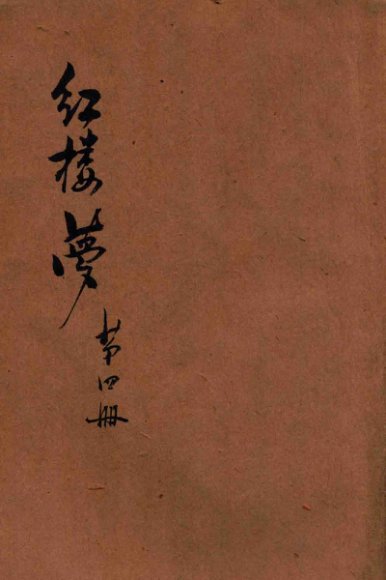 红楼夢
第四册